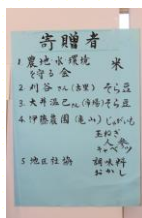 寄贈者
1 農地水環境 米
を守る会
2. 刈谷さん(吉里)そら豆
3. 大井温己さん(市場)そら豆
4. 伊藤農園(亀山)じゃがいも
玉ねぎ
人参
キャベツ
5 地区社協 調味料
おかし